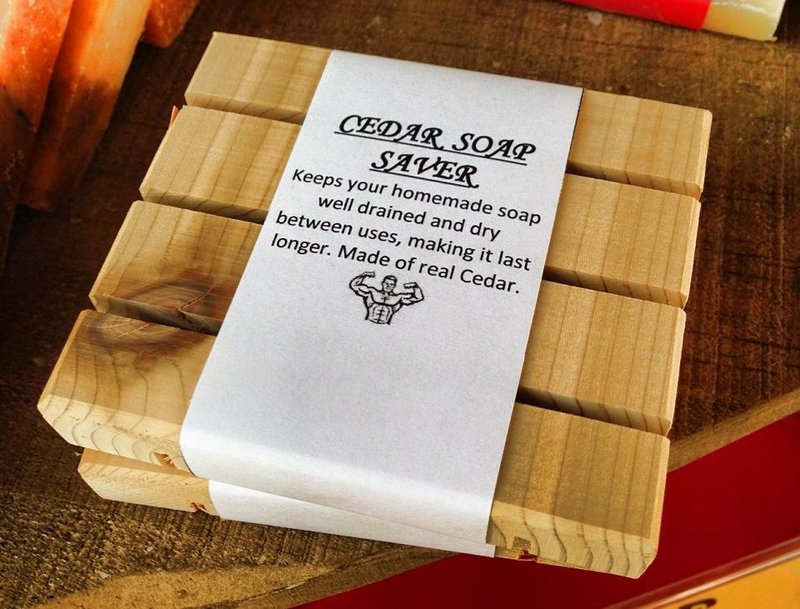 CEDAR SOAP
SAVER
Keeps your homemade soap
well drained and dry
between uses, making it last
longer. Made of real Cedar.